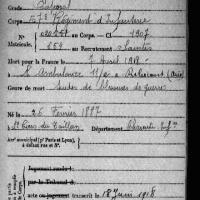 Caporal
57e Régiment d'Infanterie
au Corps. — Cl. 1907
Matricule.
au Recrutement Saintes
Mort pour la France le 7 Avril 1918
à l'Ambulance (Oise)
Genre de mort Suites de blessures de guerre
Né le 26 Février 1887
Département Charente Infre
Arrt municipal (pr Paris et Lyon),
à défaut rue et N°.
Jugement rendu le
par le Tribunal de
acte ou jugement transcrit le 18 Juin 1918